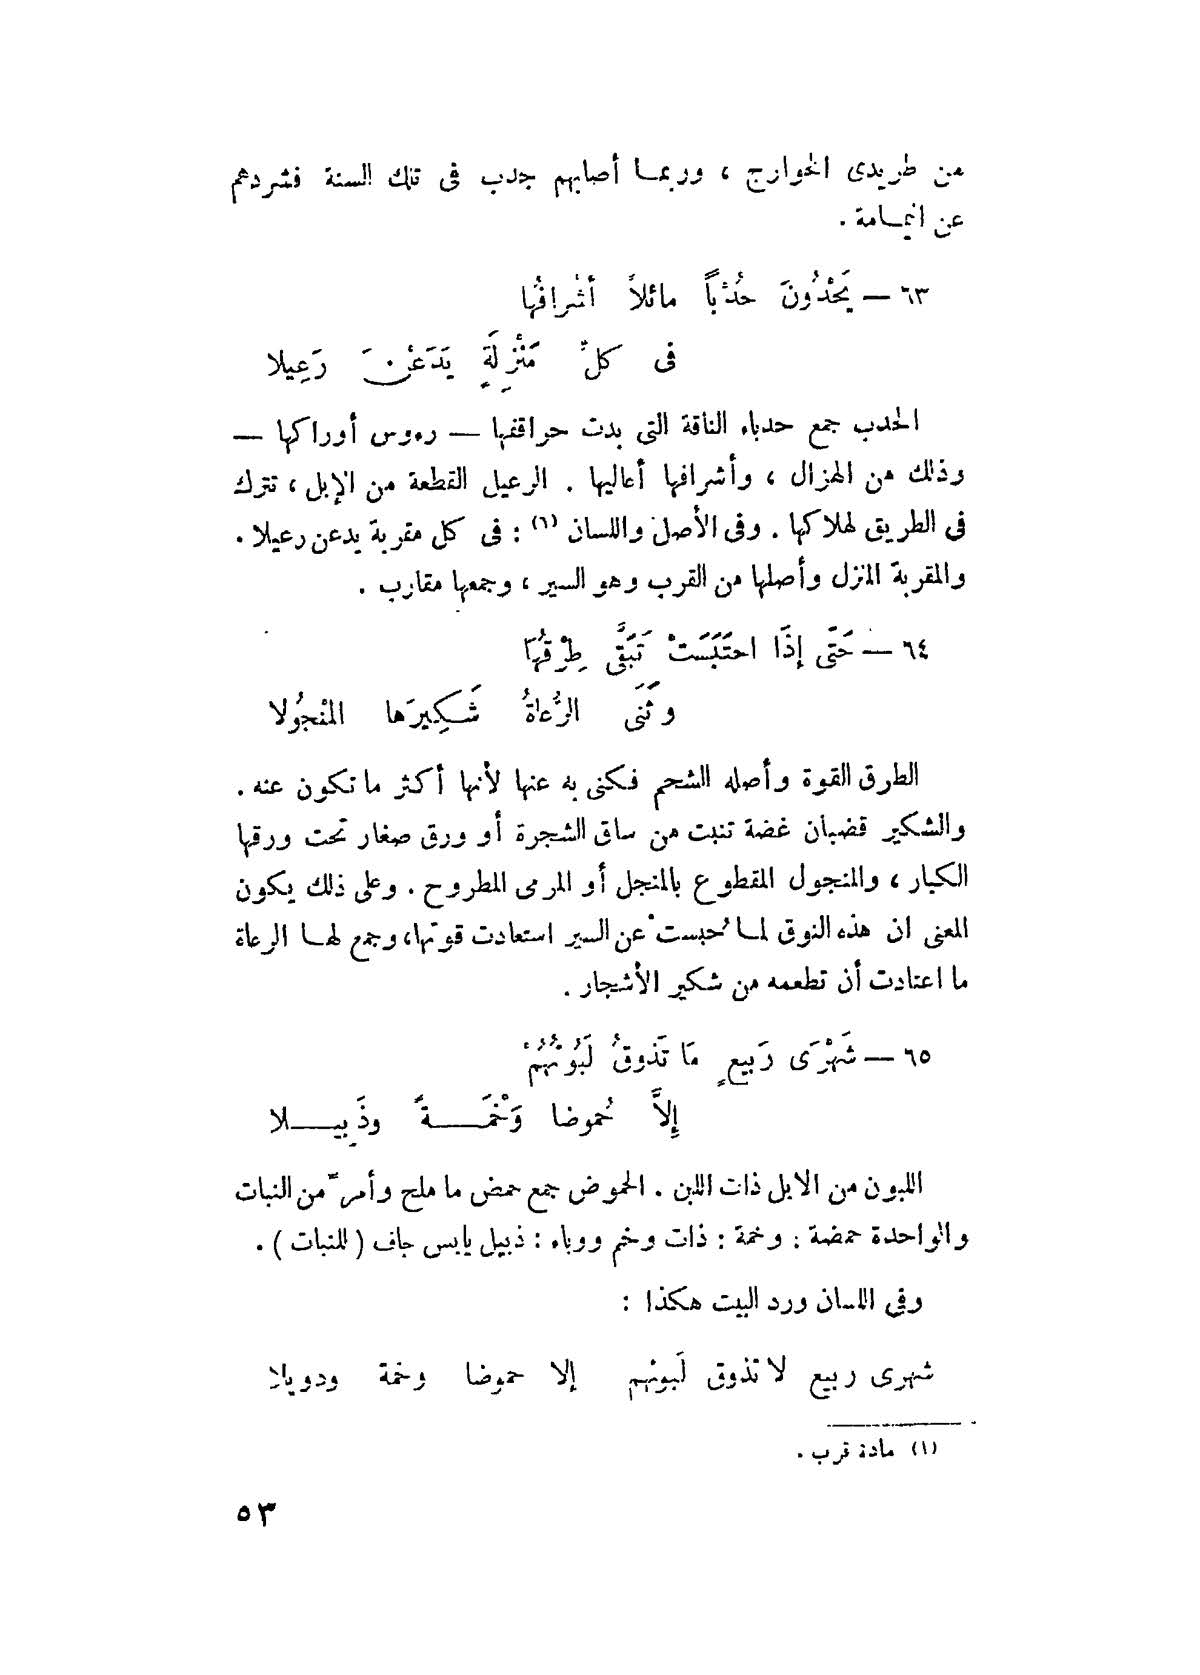 من طريدى الخوارج ، وربمـا أصابهم جدب فى تلك السنة فشردهم
عن اليمـامة .
٦٣ — يَحْدُونَ حُدْباً مائلاً أشرافُها
فى كلِّ مَنْزِلَةٍ يَدَعْنَ رَعِيلا
الحدب جمع حدباء الناقة التى بدت حراقفها — رءوس أوراكها —
وذلك من الهزال ، وأشرافها أعاليها . الرعيل القطعة من الإبل ، تترك
فى الطريق لهلاكها . وفى الأصل واللسان (١) : فى كل مقربة يدعن رعيلا .
والمقربة المنزل وأصلها من القرب وهو السير ، وجمعها مقارب .
٦٤ — حَتَّى إذَا احتَبَسَتْ تَبَقَّى طِرْقُهَا
وثَنَى الرُّعاةُ شَكِيرَها المنْجُولا
الطرق القوة وأصله الشحم فكنى به عنها لأنها أكثر ما تكون عنه .
والشكير قضبان غضة تنبت من ساق الشجرة أو ورق صغار تحت ورقها
الكبار ، والمنجول المقطوع بالمنجل أو المرمى المطروح . وعلى ذلك يكون
المعنى ان هذه النوق لمـا حُبست عن السير استعادت قوتها، وجمع لهـا الرعاة
ما اعتادت أن تطعمه من شكير الأشجار .
٦٥ — شَهْرَى رَبيعٍ مَا تَذوقُ لَبُونُهُمْ
إلاَّ حُموضا وَخْمَـــةً وذَبِيـــلا
اللبون من الابل ذات اللبن . الحموض جمع حمض ما ملح وأمرّ من النبات
والواحدة حمضة : وخمة : ذات وخم ووباء : ذبيل يابس جاف ( للنبات ) .
وفى اللسان ورد البيت هكذا :
شهرى ربيع لا تذوق لَبونهم إلا حموضا وخمة ودويلا
(١) مادة قرب .
٥٣